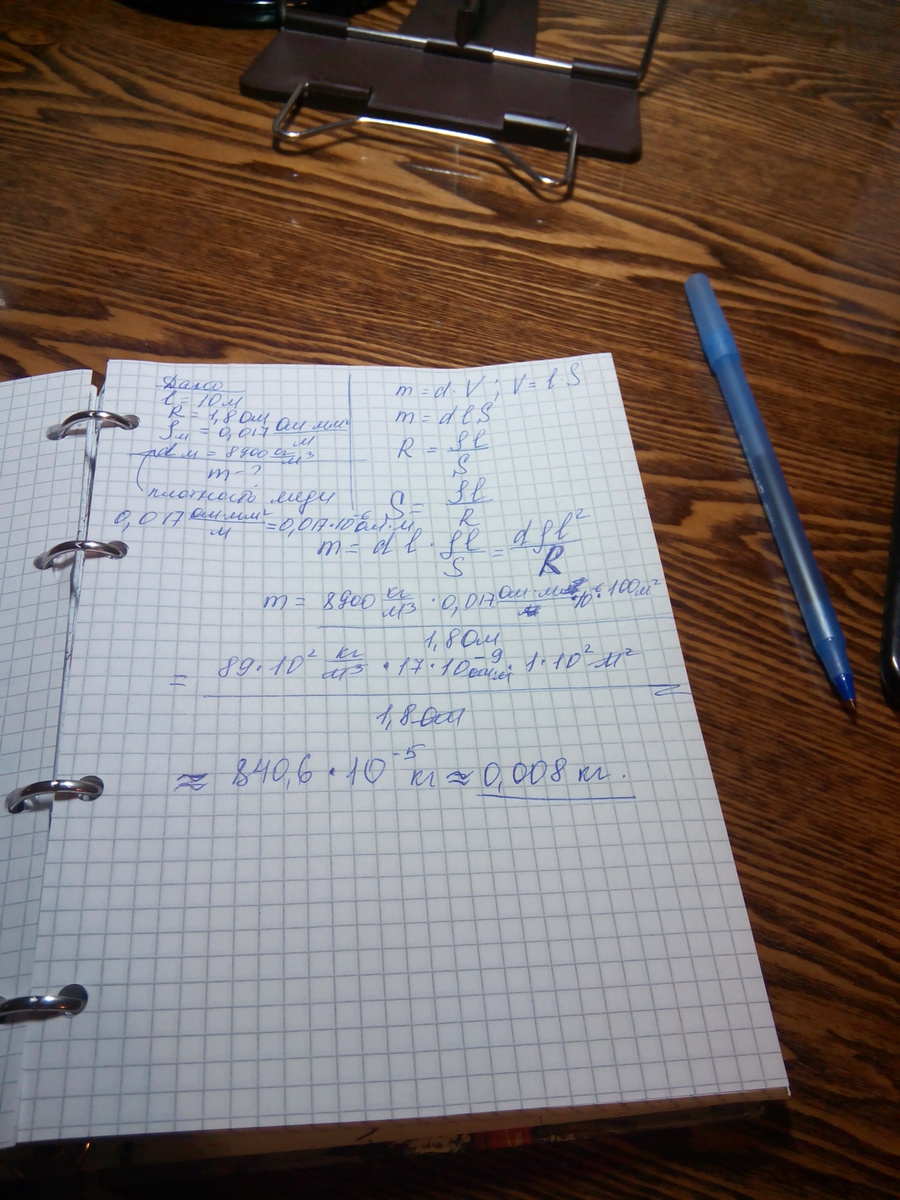 Дано
l = 10м
R = 1,8 Ом
ρм = 0,017 Ом мм²/м
dм = 8900 кг/м³
m - ?
плотность меди
0,017 Ом·мм²/м = 0,017·10⁻⁶ Ом·м
m = d·V ; V = l·S
m = d l S
R = ρl/S
S = ρl/R
m = d l · ρl/S = dρl²/R
m = 8900 кг/м³ · 0,017 Ом·м·10⁻⁶·100м² / 1,8 Ом
= 89·10² кг/м³ · 17·10⁻⁹ Ом·м · 1·10² м² / 1,8 Ом =
≈ 840,6·10⁻⁵ кг ≈ 0,008 кг.